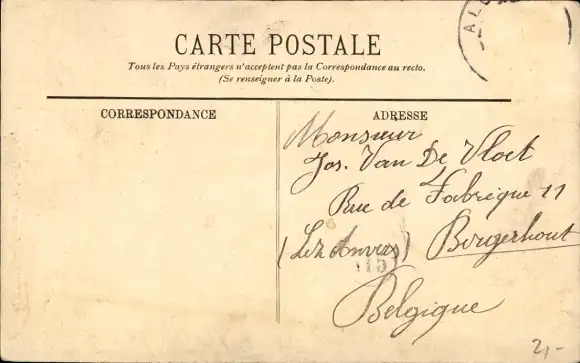 ALG
CARTE POSTALE
Tous les Pays étrangers n'acceptent pas la Correspondance au recto.
(Se renseigner à la Poste).
CORRESPONDANCE
ADRESSE
Monsieur
Jos. Van De Vloet
Rue de Fabrique 11
(Lez Anvers) Borgerhout
15
Belgique
2,-